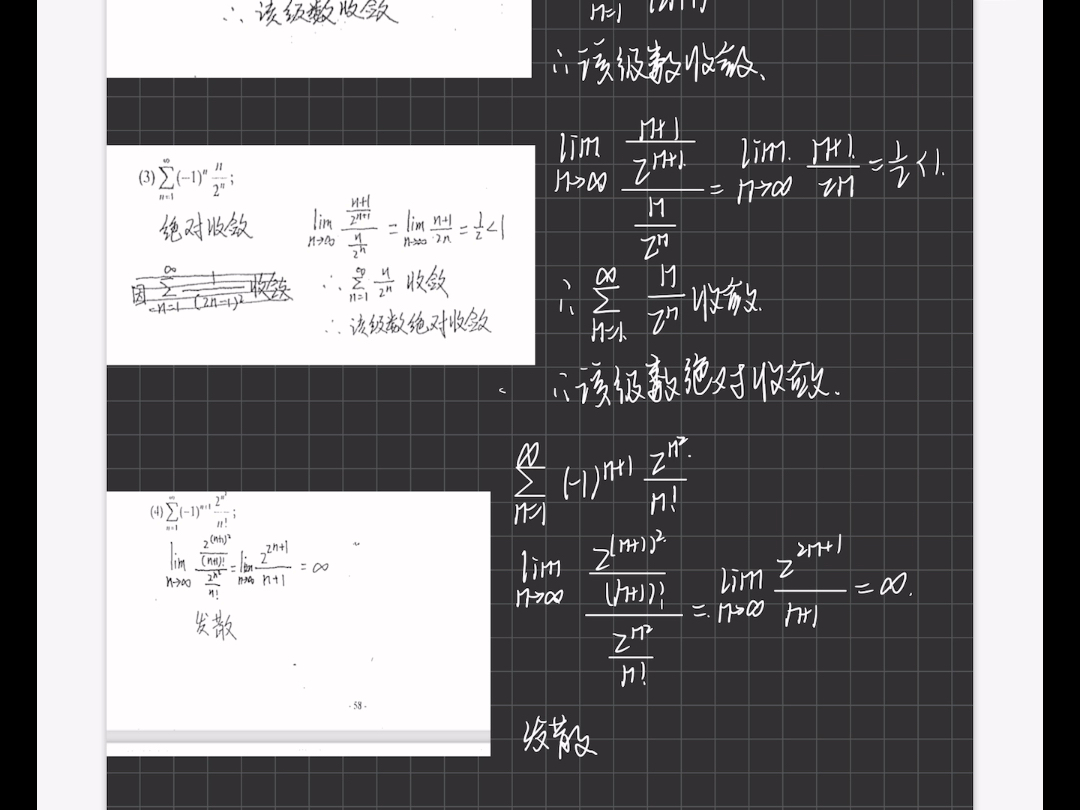 ∴ 该级数收敛
(3) ∑_{n=1}^{∞} (-1)^n n/2^n ;
绝对收敛
lim_{n→∞} ((n+1)/2^{n+1})/(n/2^n) = lim_{n→∞} (n+1)/2n = 1/2 < 1
因 ∑_{n=1}^{∞} 1/(2n-1)^2 收敛
∴ ∑_{n=1}^{∞} n/2^n 收敛
∴ 该级数绝对收敛
(4) ∑_{n=1}^{∞} (-1)^{n+1} 2^{n^2}/n! ;
lim_{n→∞} (2^{(n+1)^2}/(n+1)!)/(2^{n^2}/n!) = lim_{n→∞} 2^{2n+1}/(n+1) = ∞
发散
- 58 -
∴ 该级数收敛.
lim_{n→∞} ((n+1)/2^{n+1})/(n/2^n) = lim_{n→∞} (n+1)/2n = 1/2 < 1.
∴ ∑_{n=1}^{∞} n/2^n 收敛.
∴ 该级数绝对收敛.
∑_{n=1}^{∞} (-1)^{n+1} 2^{n^2}/n!
lim_{n→∞} (2^{(n+1)^2}/(n+1)!)/(2^{n^2}/n!) = lim_{n→∞} 2^{2n+1}/(n+1) = ∞.
发散